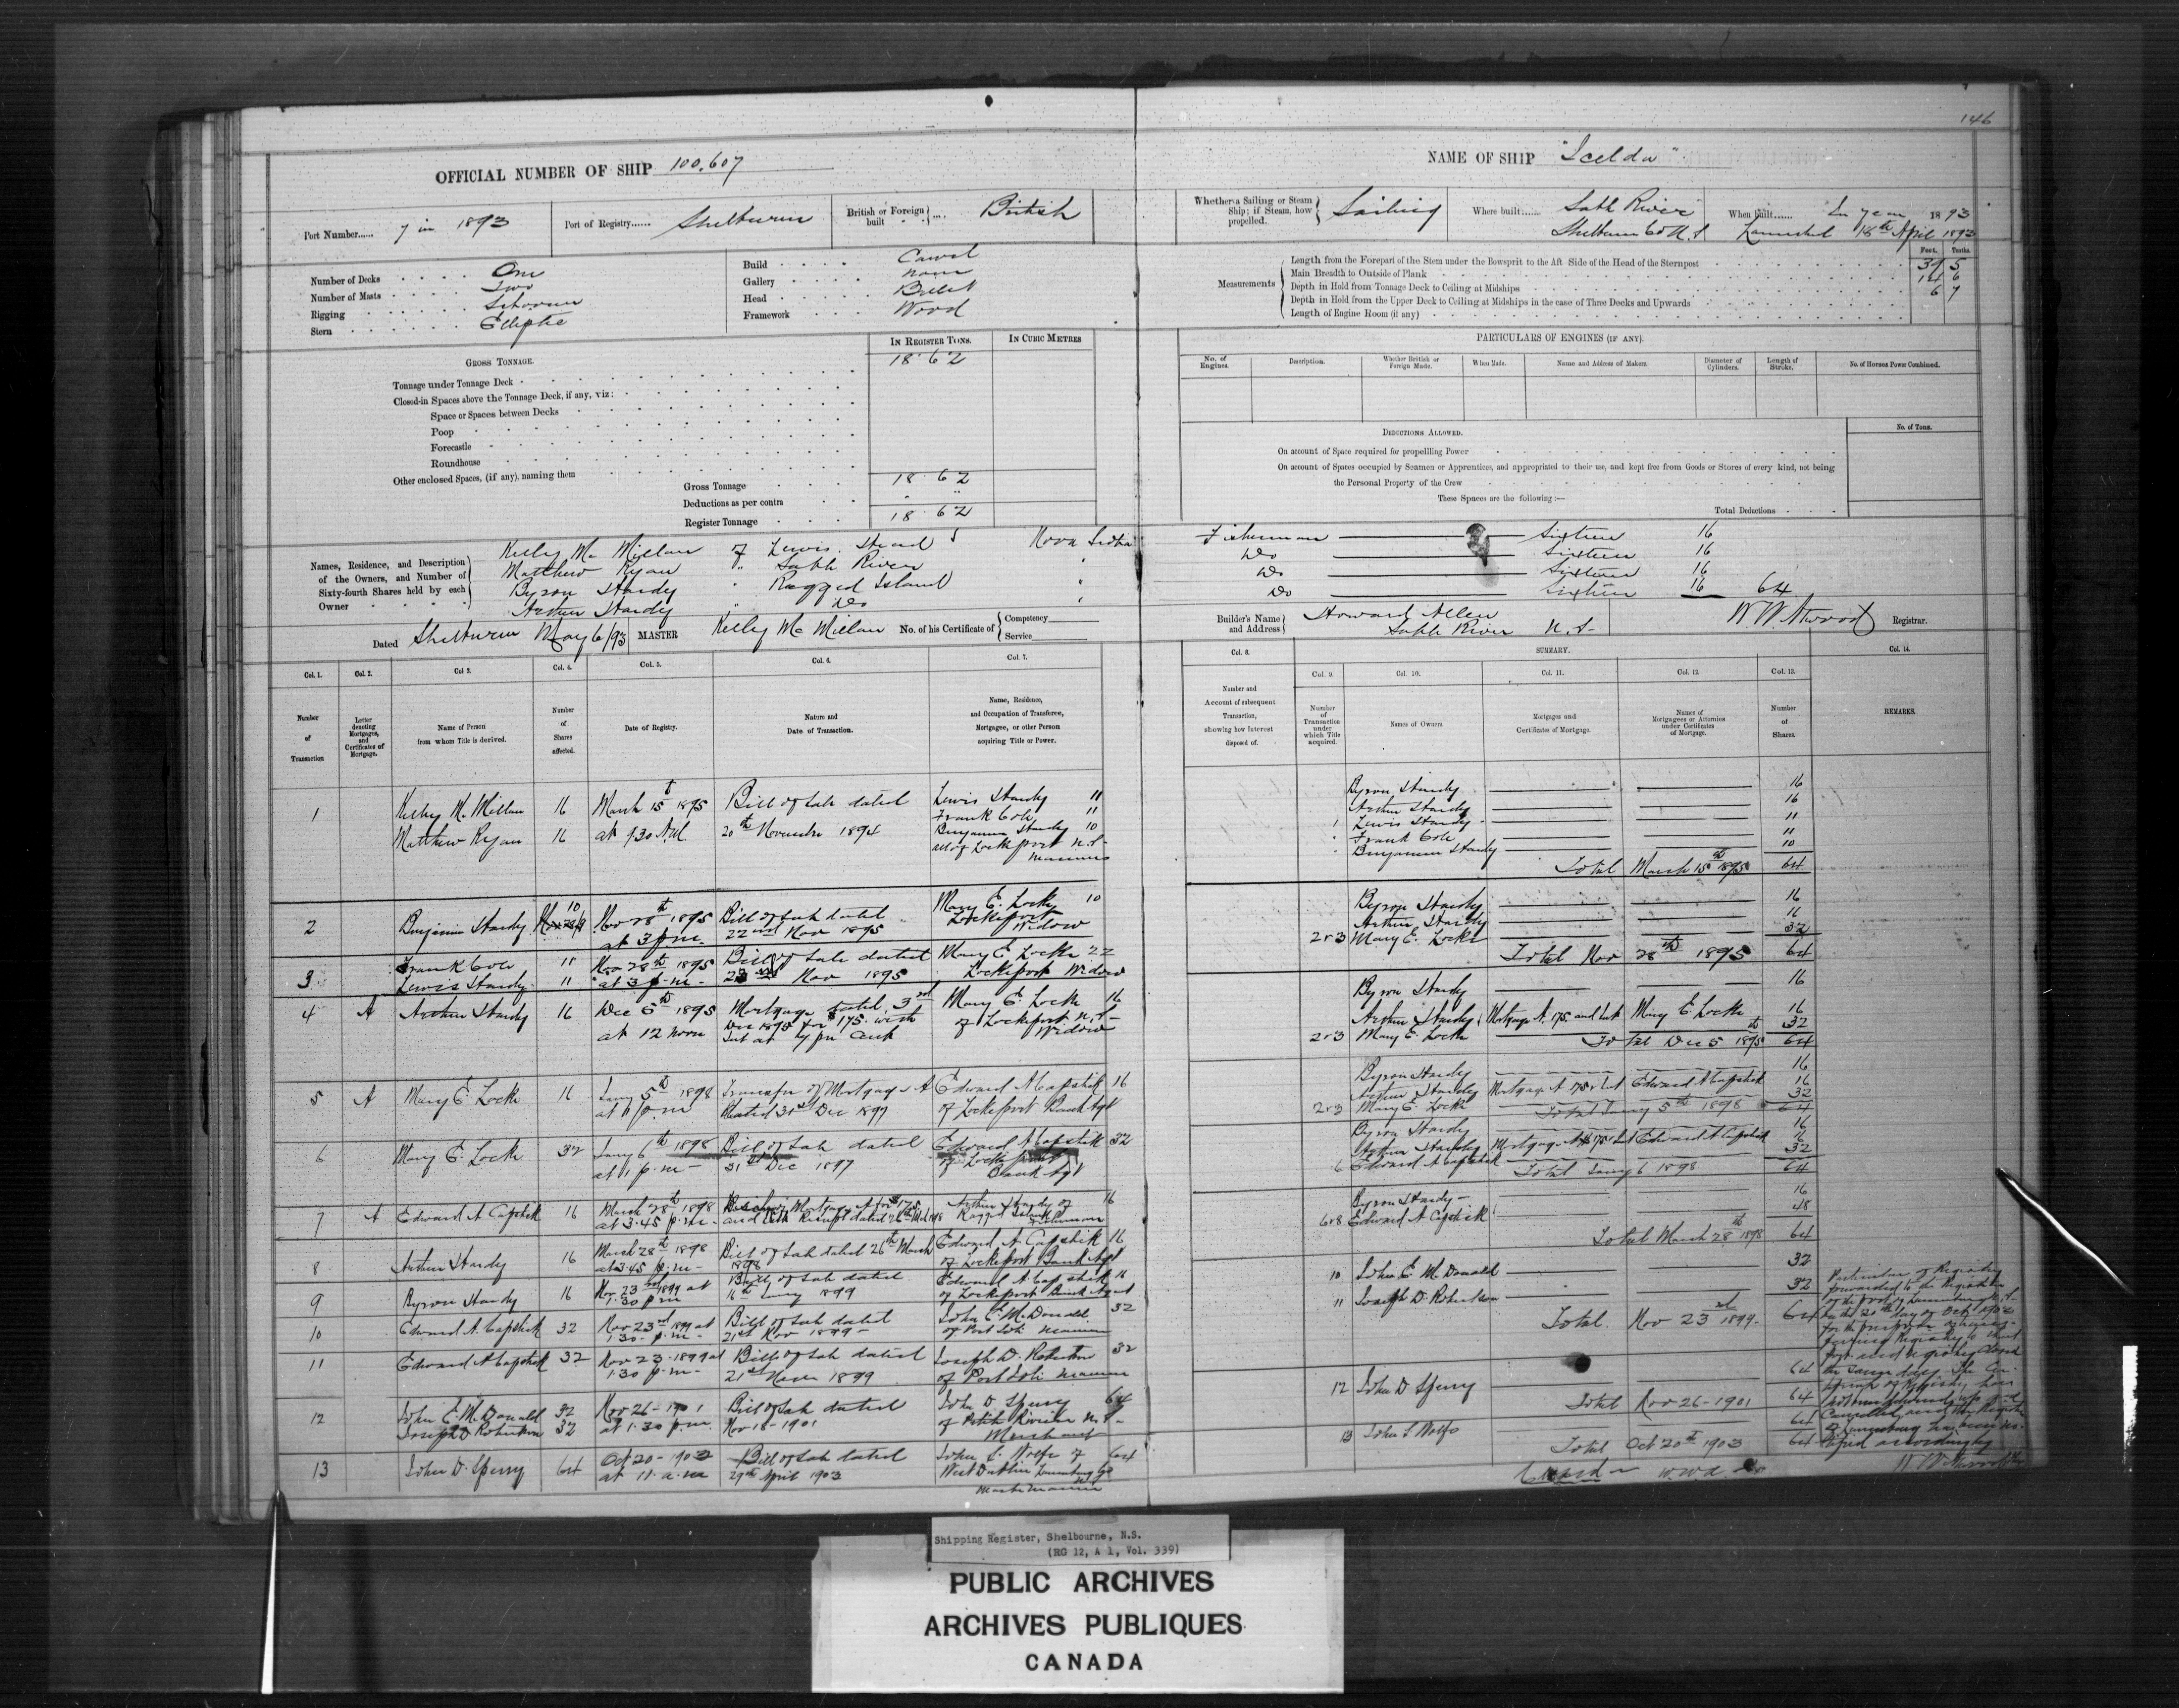 146
OFFICIAL NUMBER OF SHIP 100,607
NAME OF SHIP "Icelda"
Port Number...... 7 in 1893
Port of Registry...... Shelburne
British or Foreign built British
Whether a Sailing or Steam Ship; if Steam, how propelled. Sailing
Where built...... Sable River
Shelburne Co N.S.
When built...... In year 1893
Launched 18th April 1893
Number of Decks One
Number of Masts Two
Rigging Schooner
Stern Elliptic
Build Carvel
Gallery none
Head Billet
Framework Wood
Measurements
Feet. Tenths.
Length from the Forepart of the Stem under the Bowsprit to the Aft Side of the Head of the Sternpost 39 5
Main Breadth to Outside of Plank 14 6
Depth in Hold from Tonnage Deck to Ceiling at Midships 6 7
Depth in Hold from the Upper Deck to Ceiling at Midships in the case of Three Decks and Upwards
Length of Engine Room (if any)
GROSS TONNAGE.
IN REGISTER TONS.
IN CUBIC METRES
Tonnage under Tonnage Deck 18.62
Closed-in Spaces above the Tonnage Deck, if any, viz:
Space or Spaces between Decks
Poop
Forecastle
Roundhouse
Other enclosed Spaces, (if any), naming them
Gross Tonnage 18.62
Deductions as per contra " "
Register Tonnage 18.62
PARTICULARS OF ENGINES (IF ANY).
No. of Engines.
Description.
Whether British or Foreign Made.
When Made.
Name and Address of Makers.
Diameter of Cylinders.
Length of Stroke.
No. of Horses Power Combined.
DEDUCTIONS ALLOWED.
No. of Tons.
On account of Space required for propelling Power
On account of Spaces occupied by Seamen or Apprentices, and appropriated to their use, and kept free from Goods or Stores of every kind, not being
the Personal Property of the Crew
These Spaces are the following:—
Total Deductions
Names, Residence, and Description of the Owners, and Number of Sixty-fourth Shares held by each Owner
Kelby McMillan of Lewis Head Nova Scotia Fisherman Sixteen 16
Matthew Ryan " Sable River " Do Sixteen 16
Byron Hardy " Ragged Island " Do Sixteen 16
Arthur Hardy " Do " Do Sixteen 16 64
Dated Shelburne May 6/93
MASTER Kelby McMillan No. of his Certificate of Competency Service
Builder's Name and Address Howard Allen
Sable River N.S.
W.W. Atwood Registrar.
Col. 1.
Col. 2.
Col 3.
Col. 4.
Col. 5.
Col. 6.
Col. 7.
Col. 8.
SUMMARY.
Col. 9.
Col. 10.
Col. 11.
Col. 12.
Col. 13.
Col. 14.
Number of Transaction
Letter denoting Mortgages, and Certificates of Mortgage.
Name of Person from whom Title is derived.
Number of Shares affected.
Date of Registry.
Nature and Date of Transaction.
Name, Residence, and Occupation of Transferee, Mortgagee, or other Person acquiring Title or Power.
Number and Account of subsequent Transaction, showing how Interest disposed of.
Number of Transaction under which Title acquired.
Names of Owners.
Mortgages and Certificates of Mortgage.
Names of Mortgagees or Attornies under Certificates of Mortgage.
Number of Shares.
REMARKS.
1 Kelby McMillan 16 March 15th 1895 Bill of Sale dated Lewis Hardy 11
Matthew Ryan 16 at 9.30 AM 20th November 1894 Frank Cole 11
Benjamin Hardy 10
all of Lockeport N.S.
mariners
2 Benjamin Hardy 10 Nov 28th 1895 Bill of Sale dated Mary E. Locke 10
at 3 p.m. 22nd Nov 1895 Lockeport Widow
3 Frank Cole 11 Nov 28th 1895 Bill of Sale dated Mary E Locke 22
Lewis Hardy 11 at 3 p.m. Nov 1895 Lockeport Widow
4 A Arthur Hardy 16 Dec 5th 1895 Mortgage dated 3rd Mary E. Locke 16
at 12 noon Dec 1895 for $175. with of Lockeport N.S.
Int at 7 pr cent Widow
5 A Mary E Locke 16 Jany 5th 1898 Transfer of Mortgage A Edward A Capstick 16
at 1 p.m. dated 31st Dec 1897 of Lockeport Bank Agt
6 Mary E. Locke 32 Jany 6th 1898 Bill of Sale dated Edward A Capstick 32
at 1 p.m. 31st Dec 1897 of Lockeport
Bank Agt
7 A Edward A Capstick 16 March 28th 1898 Mortgage A for $175 Arthur Hardy of 16
at 3.45 p.m. and Receipt dated 26th Ragged Island Fisherman
8 Arthur Hardy 16 March 28th 1898 Bill of Sale dated 26th March Edward A. Capstick 16
at 3.45 p.m. 1898 of Lockeport Bank Agt
9 Byron Hardy 16 Nov 23rd 1899 at Bill of Sale dated Edward A. Capstick 16
1.30 pm 16th Jany 1899 of Lockeport Bank Agent
10 Edward A. Capstick 32 Nov 23rd 1899 at Bill of Sale dated John E. McDonald 32
1.30 p.m. 21st Nov 1899 of Port Joli mariner
11 Edward A Capstick 32 Nov 23 1899 at Bill of Sale dated Joseph D. Robertson 32
1.30 p.m. 21st 1899 of Port Joli mariner
12 John E. McDonald 32 Nov 26 - 1901 Bill of Sale dated John D. Sperry 64
Joseph D Robertson 32 at 1.30 p.m. Nov 18 - 1901 of Petite Riviere N.S.
Merchant
13 John D. Sperry 64 Oct 20 - 1903 Bill of Sale dated John S. Wolfe of 64
at 11. a.m 29th April 1903 West Dublin Lunenburg Co
Master mariner
Byron Hardy 16
Arthur Hardy 16
1 Lewis Hardy 11
" Frank Cole 11
" Benjamin Hardy 10
Total March 15th 1895 64
Byron Hardy 16
Arthur Hardy 16
2 & 3 Mary E. Locke 32
Total Nov 28th 1895 64
Byron Hardy 16
Arthur Hardy Mortgage A. 175. and Int Mary E Locke 16
2 & 3 Mary E. Locke 32
Total Dec 5th 1895 64
Byron Hardy 16
Arthur Hardy Mortgage A 175 & Int Edward A Capstick 16
2 & 3 Mary E. Locke 32
Total Jany 5th 1898 64
Byron Hardy 16
Arthur Hardy Mortgage A $175 & Int Edward A Capstick 16
6 Edward A Capstick 32
Total Jany 6 1898 64
Byron Hardy 16
6 & 8 Edward A Capstick 48
Total March 28th 1898 64
10 John E. McDonald 32
11 Joseph D. Robertson 32
Total Nov 23rd 1899 64
12 John D Sperry 64
Total Nov 26 - 1901 64
13 John S Wolfe 64
Total Oct 20th 1903 64
Particulars of Registry
forwarded to the Registrar
of the port of Lunenburg N.S.
on the 20th day of Oct 1903
for the purpose of
Registry to that
port and registry closed
the same day. The
of Registry has
cancelled and the Registrar
of Lunenburg has been
notified accordingly
W W Atwood
Shipping Register, Shelbourne, N.S.
(RG 12, A 1, Vol. 339)
PUBLIC ARCHIVES
ARCHIVES PUBLIQUES
CANADA